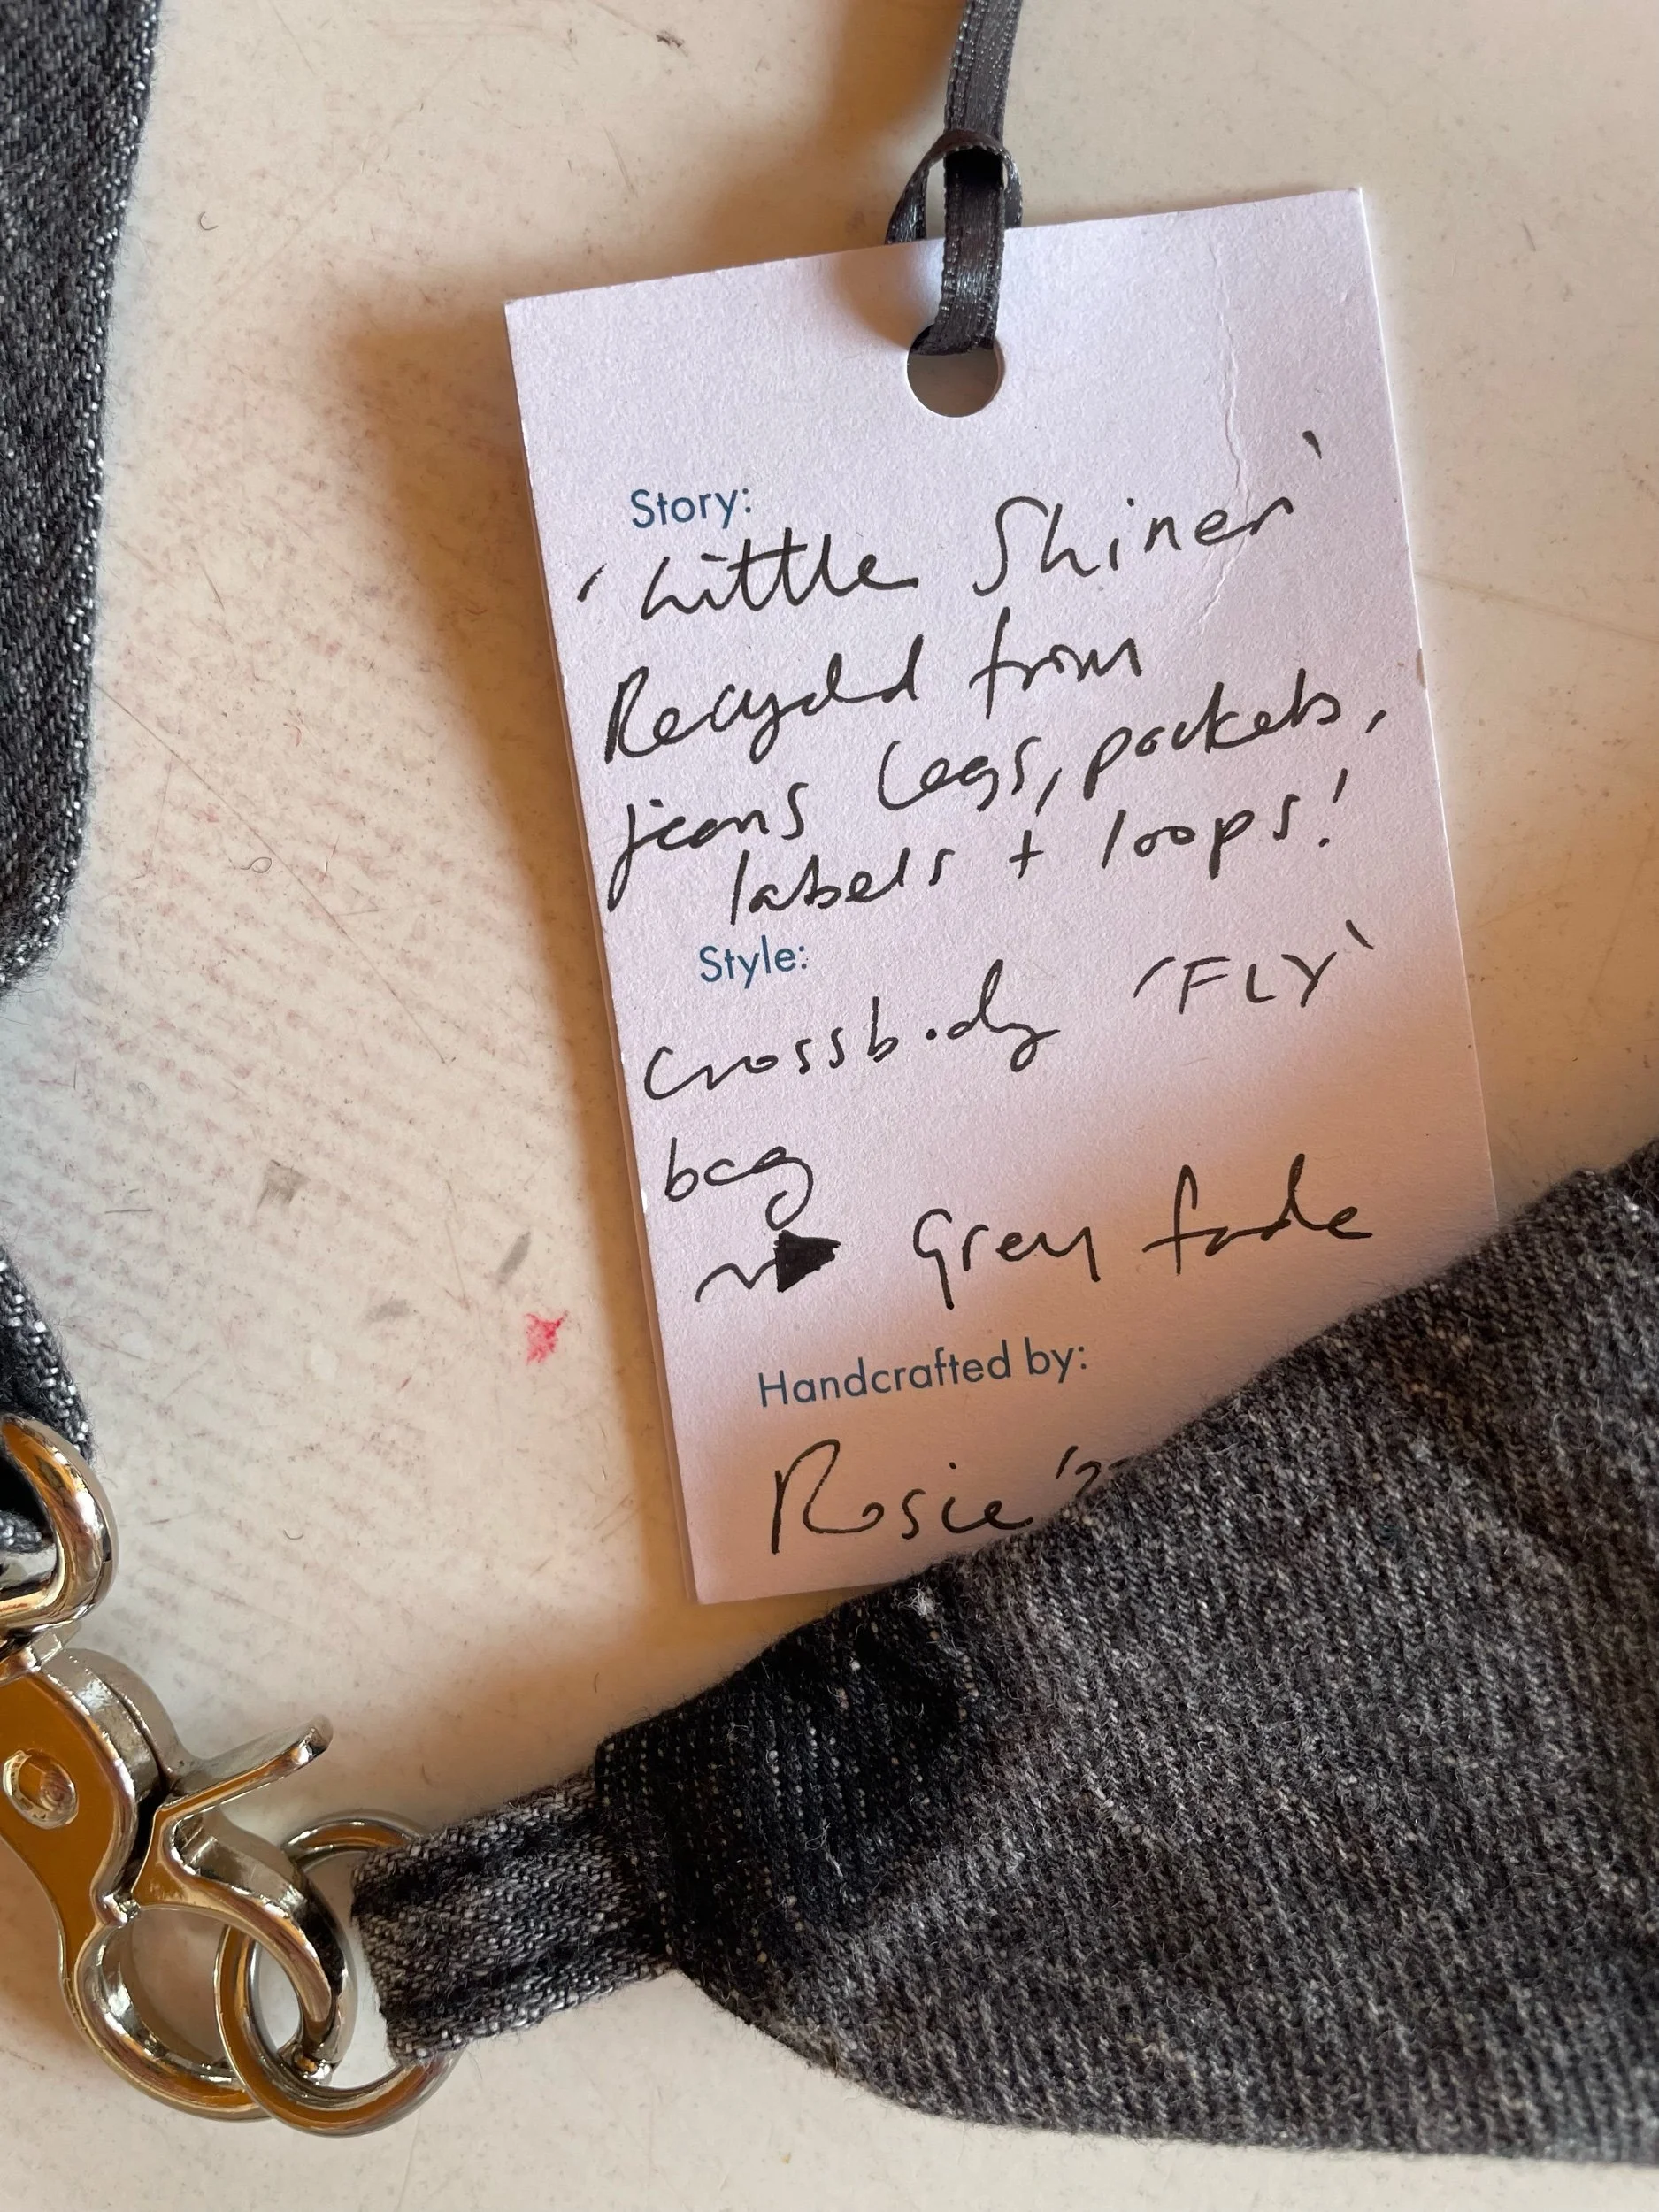 Story:
'Little Shiner'
Recycled from
jeans legs, pockets,
labels + loops!
Style:
Crossbody 'FLY'
bag
Grey fade
Handcrafted by:
Rosie